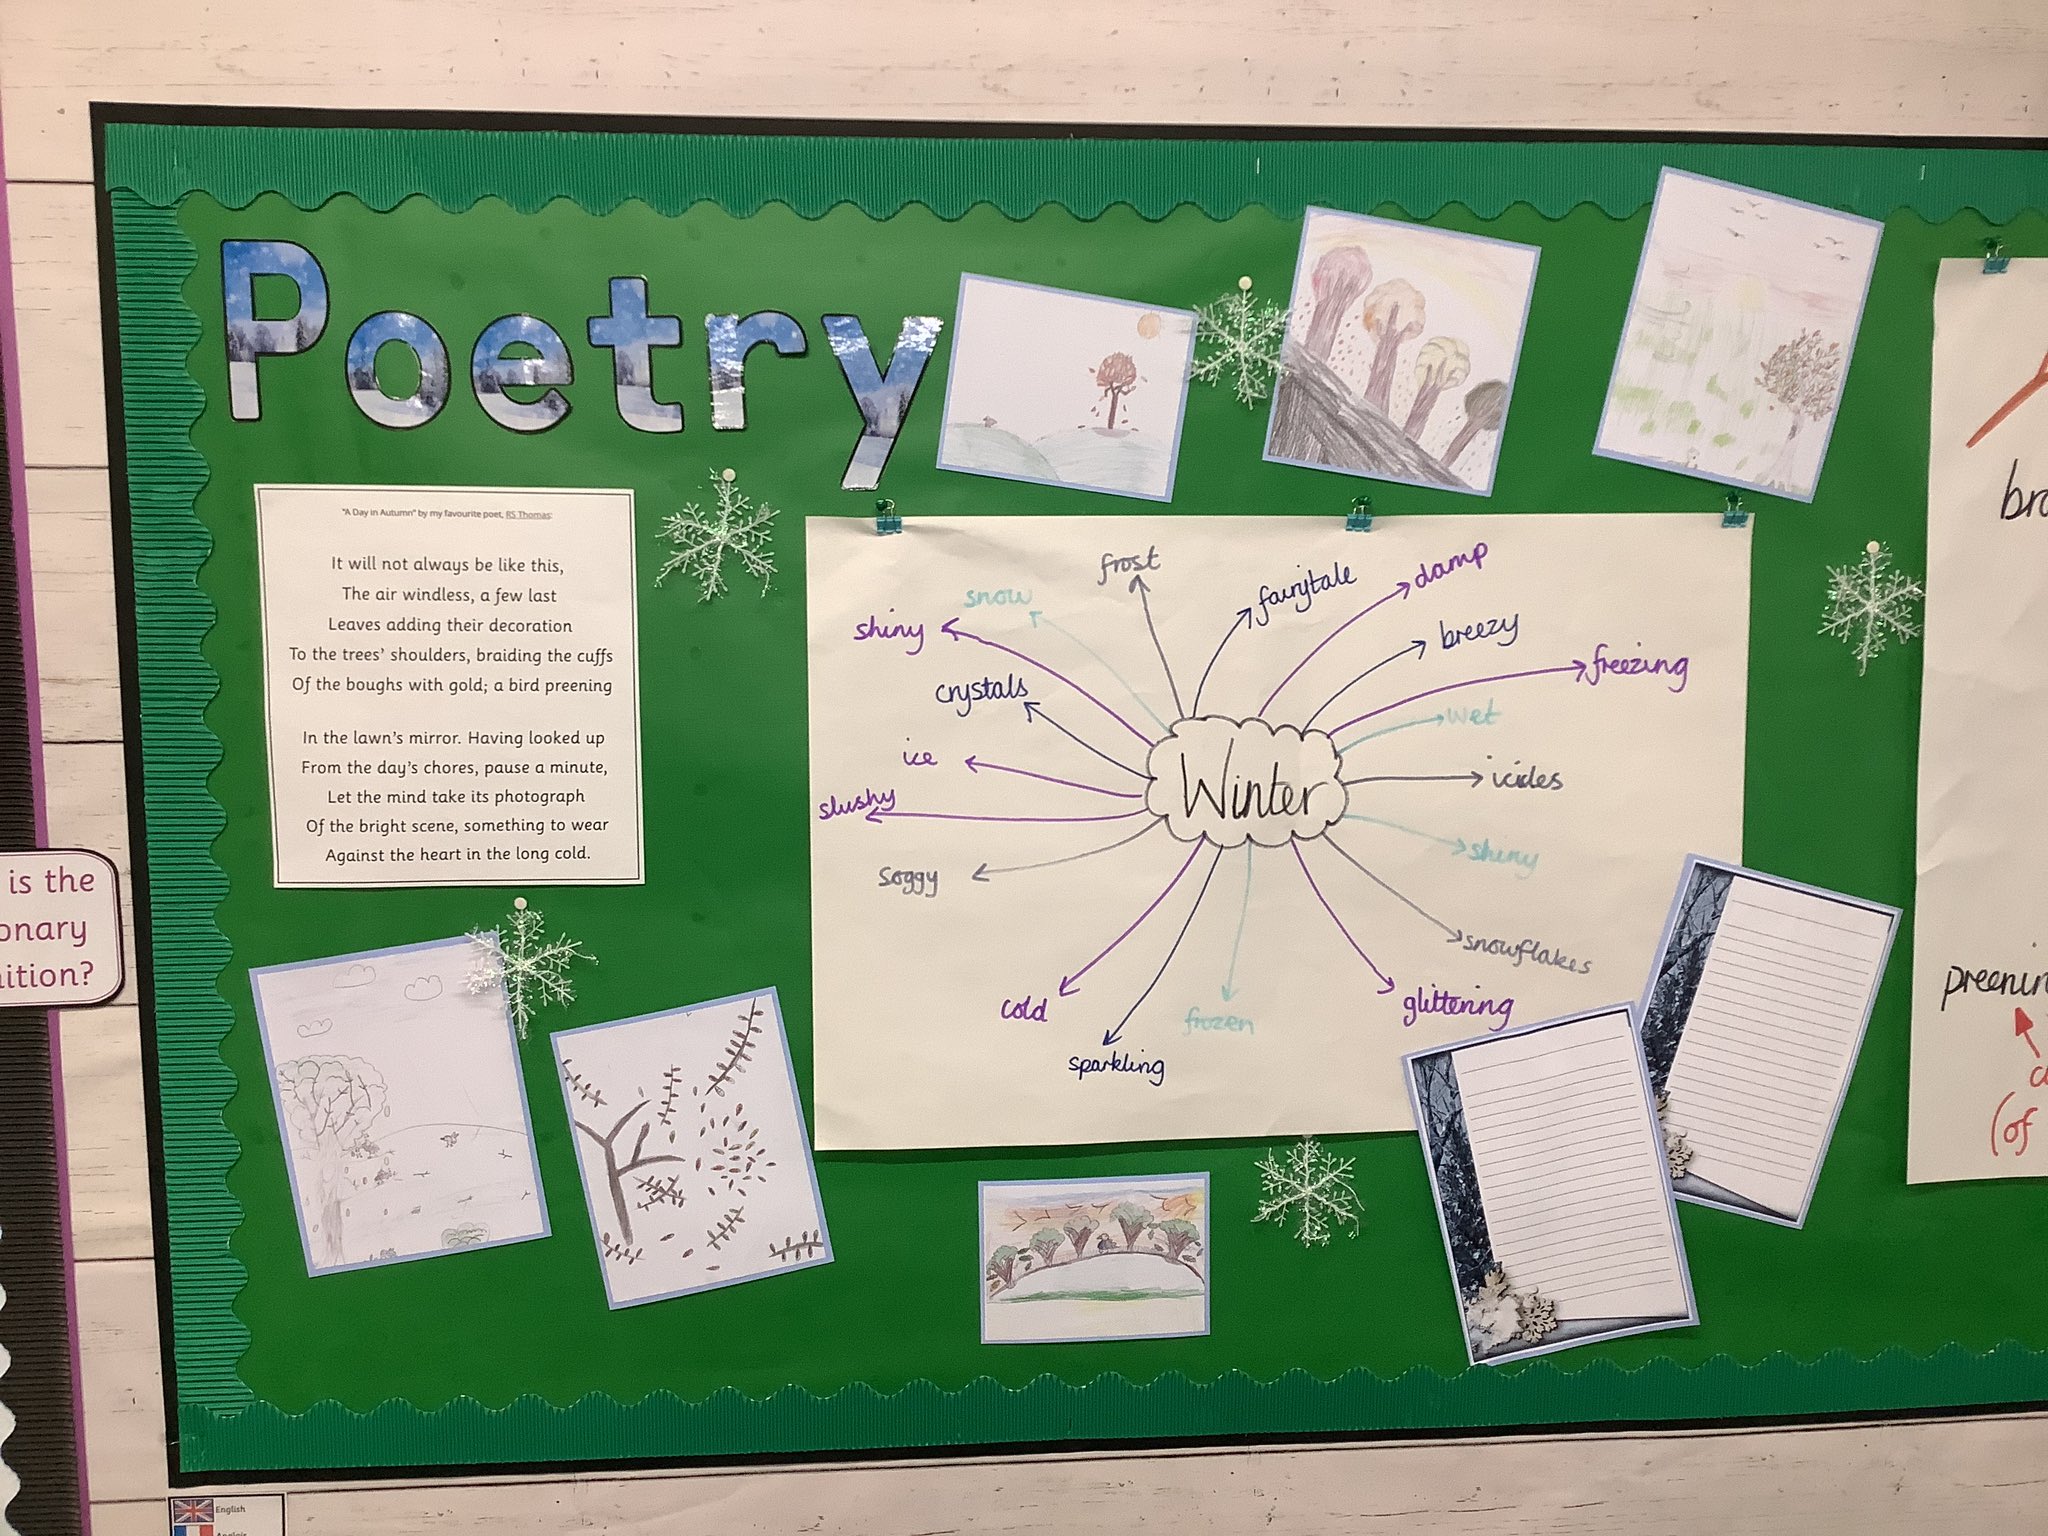 Poetry
"A Day in Autumn" by my favourite poet, RS Thomas:
It will not always be like this,
The air windless, a few last
Leaves adding their decoration
To the trees' shoulders, braiding the cuffs
Of the boughs with gold; a bird preening
In the lawn's mirror. Having looked up
From the day's chores, pause a minute,
Let the mind take its photograph
Of the bright scene, something to wear
Against the heart in the long cold.
Winter
frost
fairytale
damp
breezy
freezing
wet
icicles
shiny
snowflakes
glittering
frozen
sparkling
cold
soggy
slushy
ice
crystals
shiny
snow
is the
onary
nition?
bra
preenin
(of
English